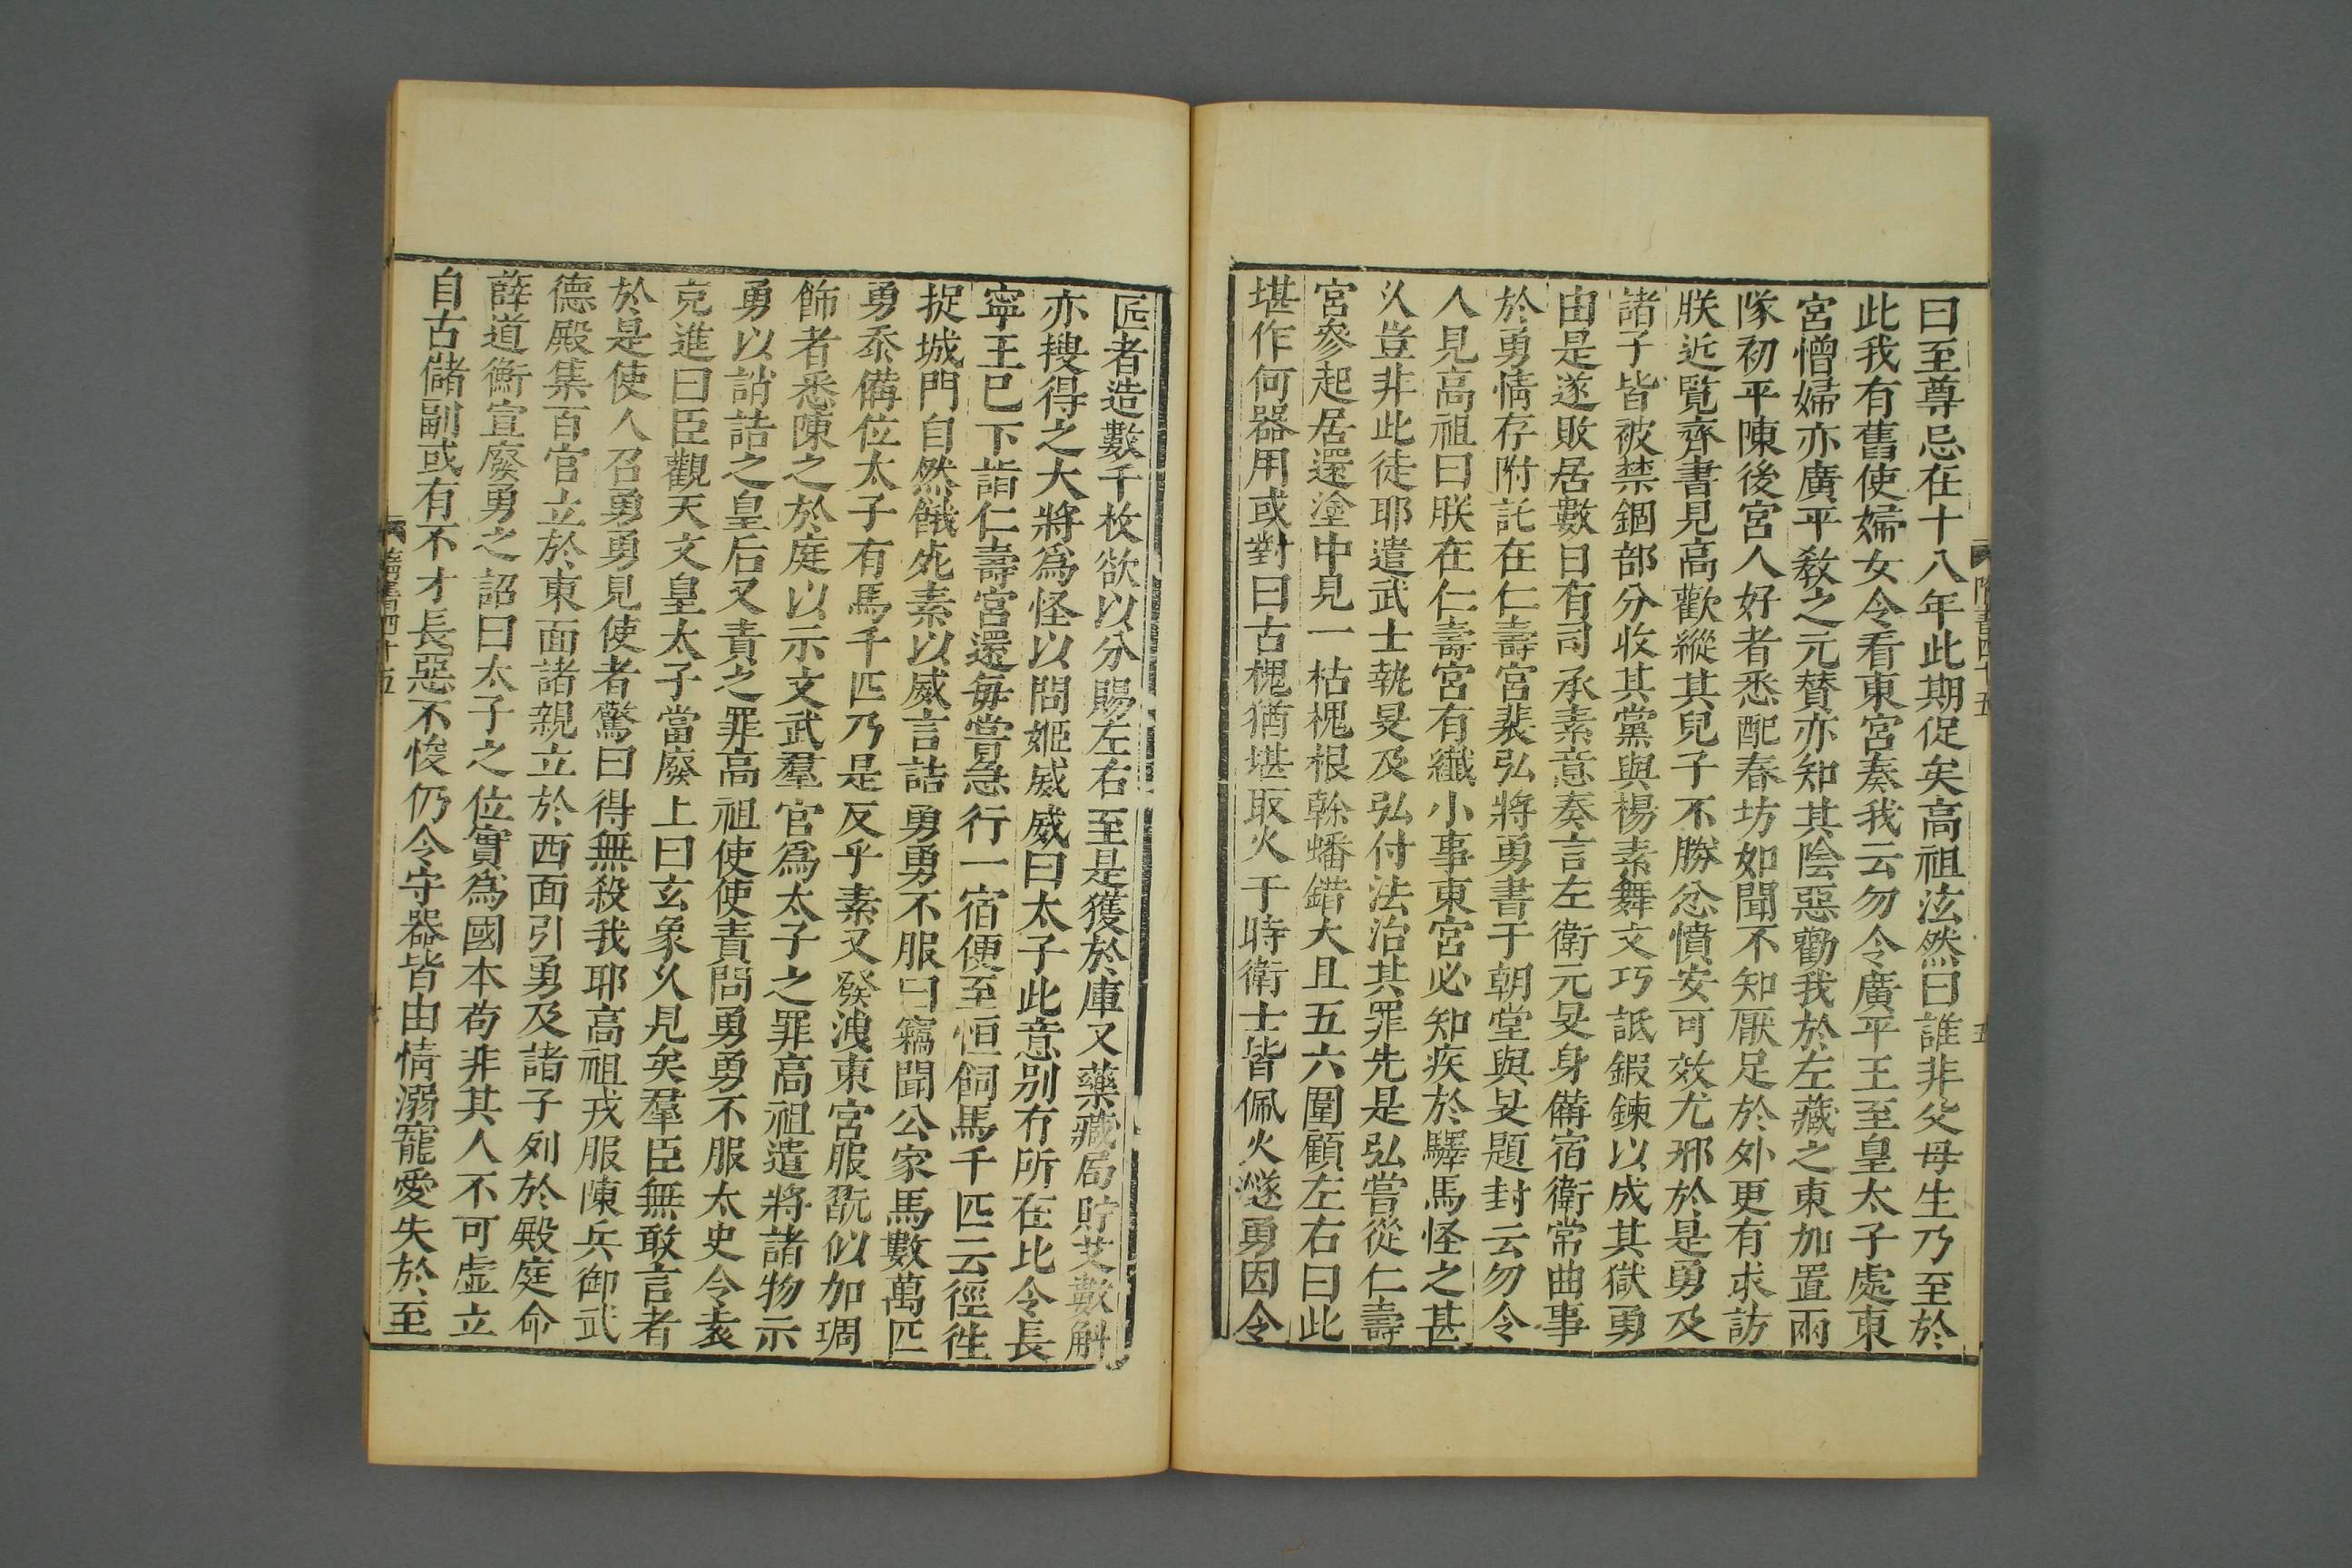 曰至尊忌在十八年此期促矣高祖泫然曰誰非父母生乃至於
此我有舊使婦女令看東宮奏我云勿令廣平王至皇太子處東
宮憎婦亦廣平教之元贊亦知其陰惡勸我於左藏之東加置兩
隊初平陳後宮人好者悉配春坊如聞不知厭足於外更有求訪
朕近覽齊書見高歡縱其兒子不勝忿憤安可效尤邪於是勇及
諸子皆被禁錮部分收其黨與楊素舞文巧詆鍛鍊以成其獄勇
由是遂敗居數日有司承素意奏言左衛元旻身備宿衛常曲事
於勇情存附託在仁壽宮裴弘將勇書于朝堂與旻題封云勿令
人見高祖曰朕在仁壽宮有纖小事東宮必知疾於驛馬怪之甚
久豈非此徒耶遣武士執旻及弘付法治其罪先是弘嘗從仁壽
宮參起居還塗中見一枯槐根榦蟠錯大且五六圍顧左右曰此
堪作何器用或對曰古槐猶堪取火于時衛士皆佩火燧勇因令
隋書四十五
五
匠者造數千枚欲以分賜左右至是獲於庫又藥藏局貯艾數斛
亦搜得之大將爲怪以問姬威威曰太子此意別有所在比令長
寧王已下詣仁壽宮還每嘗急行一宿便至恒飼馬千匹云徑往
捉城門自然餓死素以威言詰勇勇不服曰竊聞公家馬數萬匹
勇忝備位太子有馬千匹乃是反乎素又發洩東宮服翫似加琱
飾者悉陳之於庭以示文武羣官爲太子之罪高祖遣將諸物示
勇以誚詰之皇后又責之罪高祖使使責問勇勇不服太史令袁
充進曰臣觀天文皇太子當廢上曰玄象久見矣羣臣無敢言者
於是使人召勇勇見使者驚曰得無殺我耶高祖戎服陳兵御武
德殿集百官立於東面諸親立於西面引勇及諸子列於殿庭命
薛道衡宣廢勇之詔曰太子之位實爲國本苟非其人不可虛立
自古儲副或有不才長惡不悛仍令守器皆由情溺寵愛失於至
隋書四十五